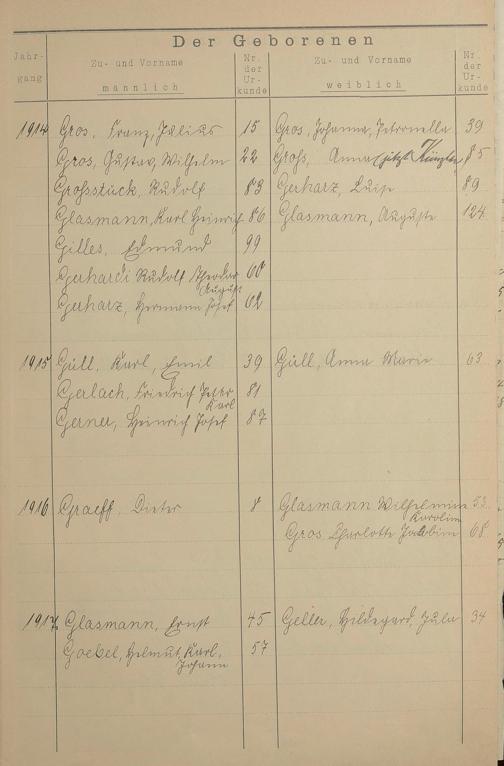 Der Geborenen
Jahr-
gang
Zu- und Vorname
männlich
Nr.
der
Ur-
kunde
Zu- und Vorname
weiblich
Nr.
der
Ur-
kunde
1914 Gros, Franz, Julius 15 Gros, Johanna, Petronella 39
Gros, Gustav, Wilhelm 22 Groß, Anna (jetzt Künzler) 85
Grossstück, Rudolf 83 Gerharz, Luise 89
Glasmann, Karl Heinrich 86 Glasmann, Auguste 124
Gilles, Edmund 99
Gerhardi Rudolf Theodor 60
August
Gerharz, Hermann Josef 62
1915 Güll, Karl, Emil 39 Güll, Anna Marie 63
Gerlach, Friedrich Peter 81
Karl
Gerner, Heinrich Josef 87
1916 Graeff, Dieter 8 Glasmann Wilhelmine 53
Karoline
Gros Charlotte Jakobine 68
1917 Glasmann, Ernst 45 Geller, Hildegard, Jula 34
Goebel, Helmut, Karl, 57
Johann